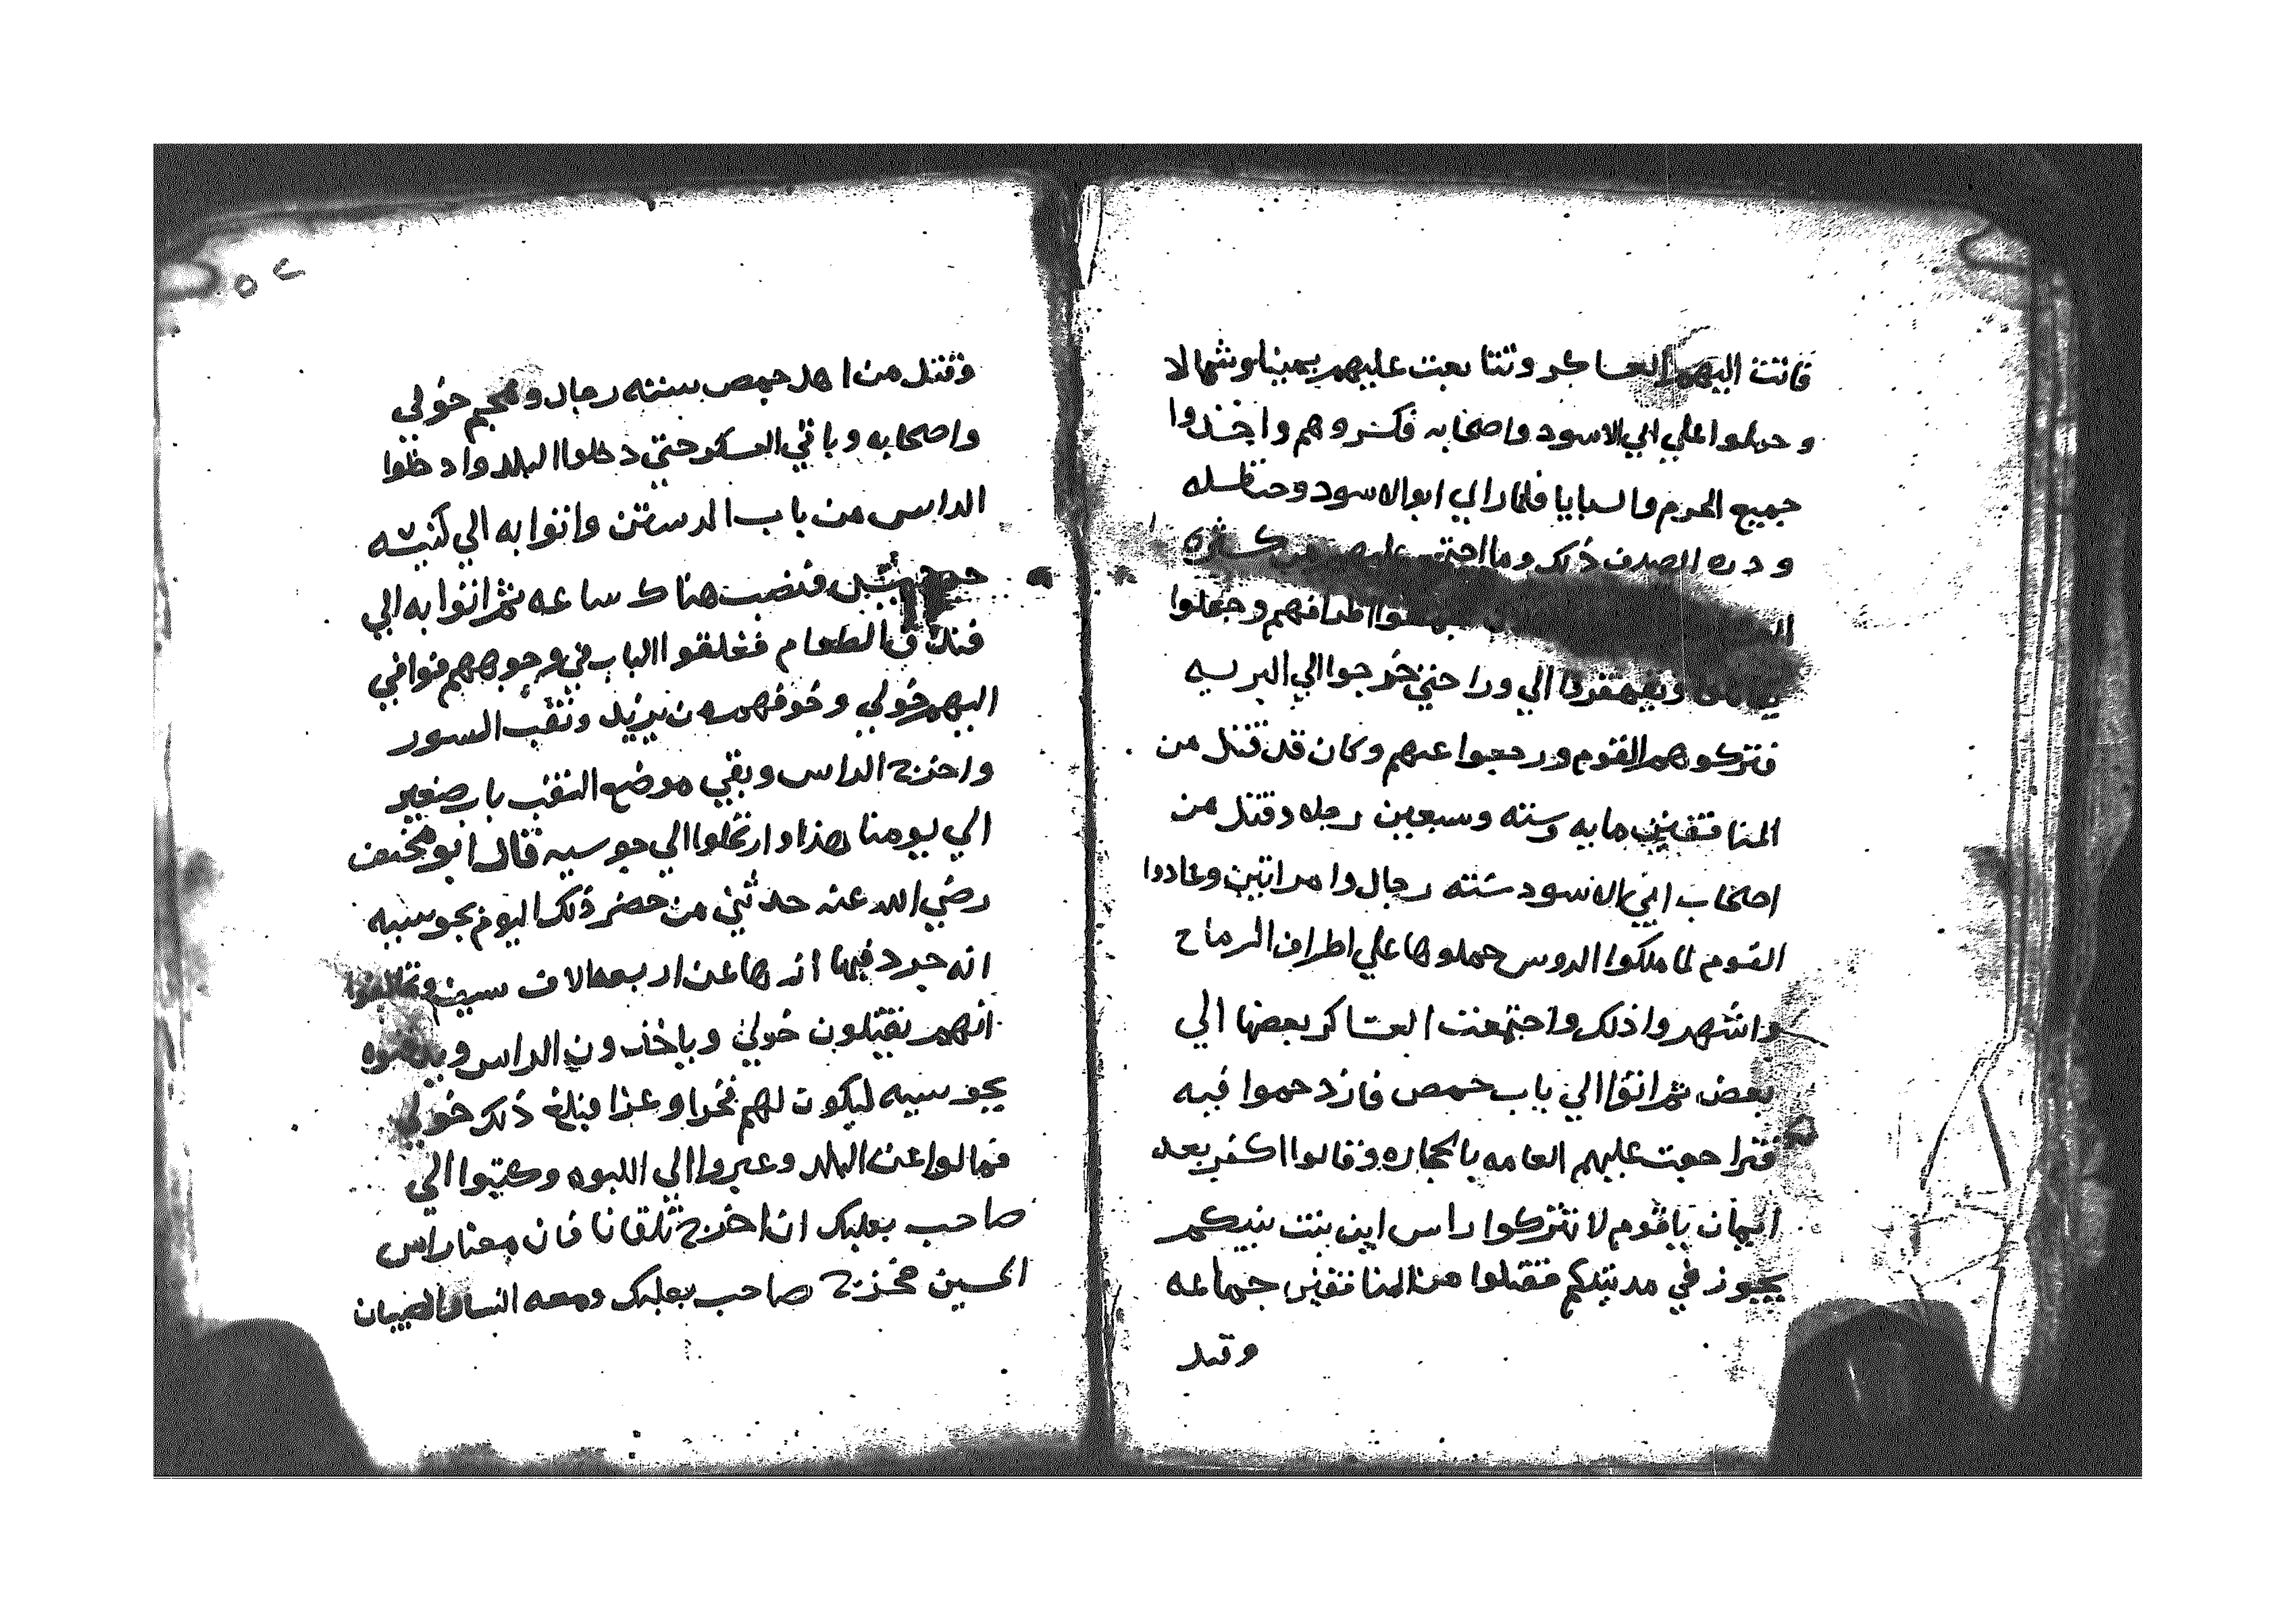 فاتت اليهم العساكر وتتابعت عليهم يمينا وشمالا
وحملوا علي ابي الاسود واصحابه فكسروهم واخذوا
جميع الحرم والسبايا فلما راي ابو الاسود وحنظله
ودره الصدف ذلك وما اجتمع عليهم من كثره
اطرافهم وجعلوا
الي ورا حتي خرجوا الي البريه
فتركوهم القوم ورجعوا عنهم وكان قد قتل من
المنافقين مايه وسته وسبعين رجله وقتل من
اصحاب ابي الاسود سته رجال وامراتين وعادوا
القوم لما ملكوا الروس حملوها علي اطراف الرماح
واشهروا ذلك واجتمعت العساكر بعضها الي
بعض ثم اتوا الي باب حمص فازدحموا فيه
فتراجعت عليهم العامه بالحجاره وقالوا اكفر بعد
ايمان ياقوم لا تتركوا راس ابن بنت نبيكم
يجوز في مدينتكم فقتلوا من المنافقين جماعه
وقتل
٥٢
وقتل من اهل حمص سته رجال وهجم خولي
واصحابه وباقي العسكر حتي دخلوا البلد وادخلوا
الراس من باب الرستن واتوا به الي كنيسه
فنصب هناك ساعه ثم اتوا به الي
فندق الطعام فغلقوا الباب في وجوههم فوافي
اليهم خولي وخوفهم من يزيد ونقب السور
واخرج الراس وبقي موضع النقب باب صغير
الي يومنا هذا وارتحلوا الي جوسيه قال ابو مخنف
رضي الله عنه حدثني من حضر ذلك اليوم بجوسيه
انه جرد فيها انها عن اربعه الاف سيف وتحالفوا
انهم يقتلون خولي وياخذون الراس ويدفنوه
بجوسيه ليكون لهم فخرا وعزا فبلغ ذلك خولي
فمالوا عن البلد وعبروا الي اللبوه وكتبوا الي
صاحب بعلبك ان اخرج تلقانا فان معنا راس
الحسين فخرج صاحب بعلبك ومعه النسا والصبيان